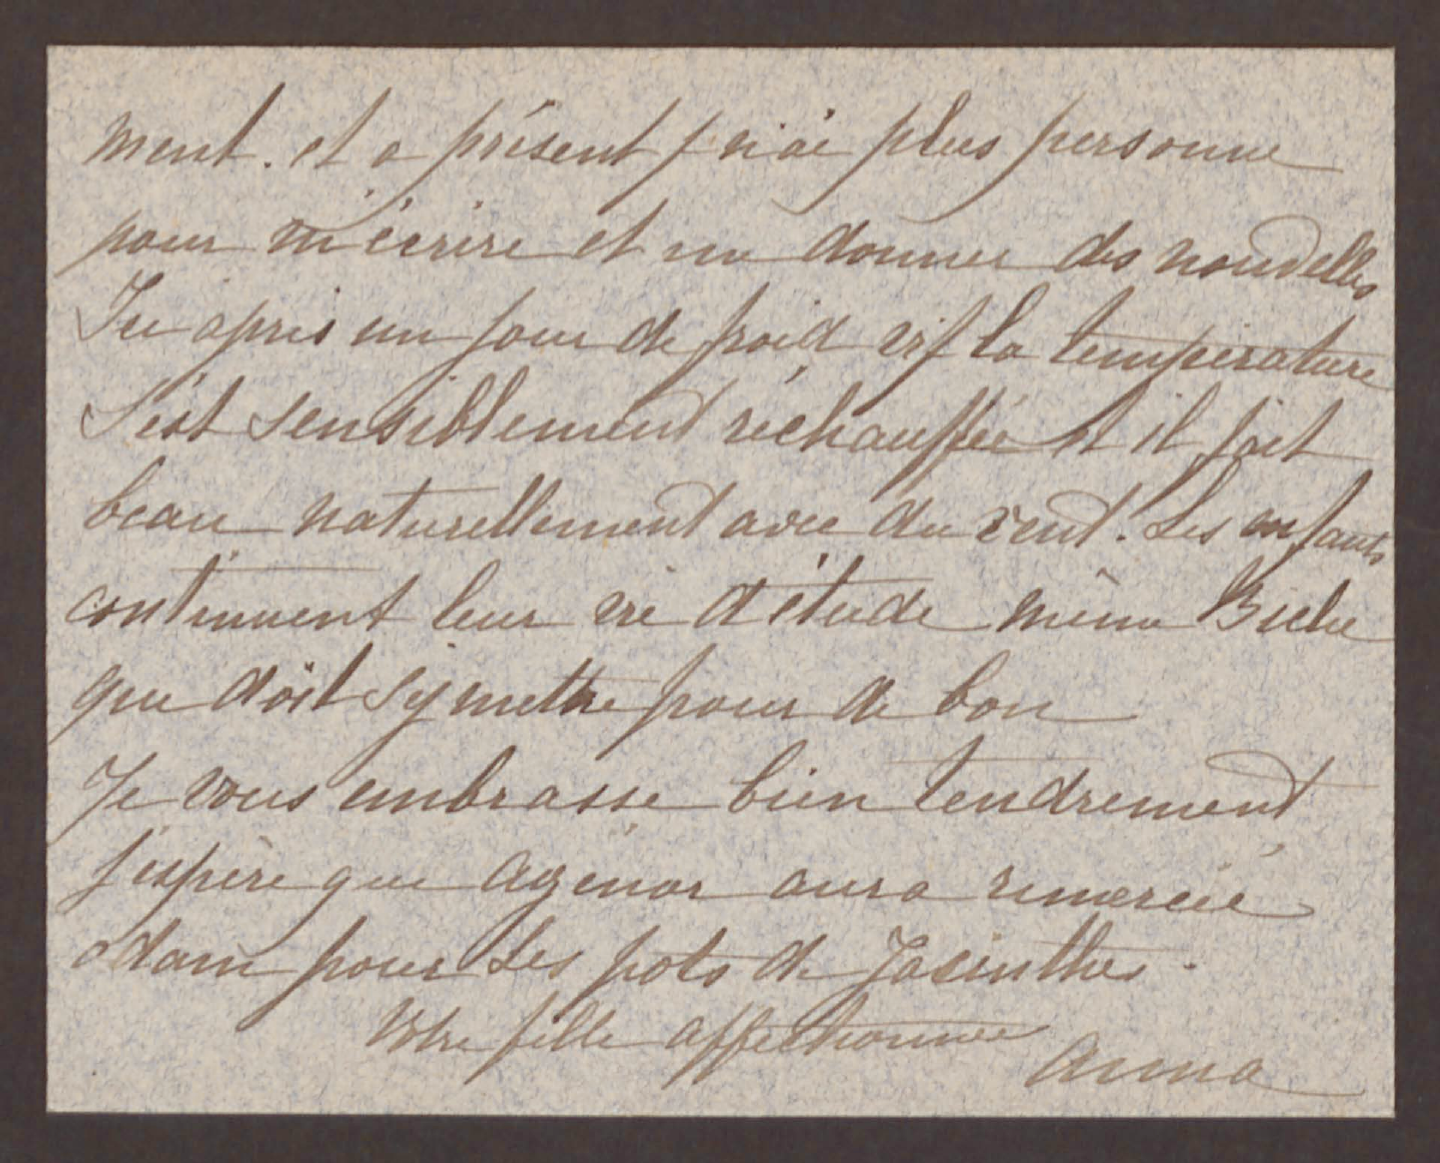 ment. et a présent j n'ai plus personne
pour m'écrire et me donner des nouvelles
Ici après un jour de froid vif la température
s'est sensiblement réchauffée et il fait
beau naturellement avec du vent. Les enfants
continuent leur vie d'étude même Biche
que doit s'y mettre pour de bon
Je vous embrasse bien tendrement
j'espère que Agénor aura remercié
adam pour les pots de Jacinthes.
Votre fille affectionnée
Anna